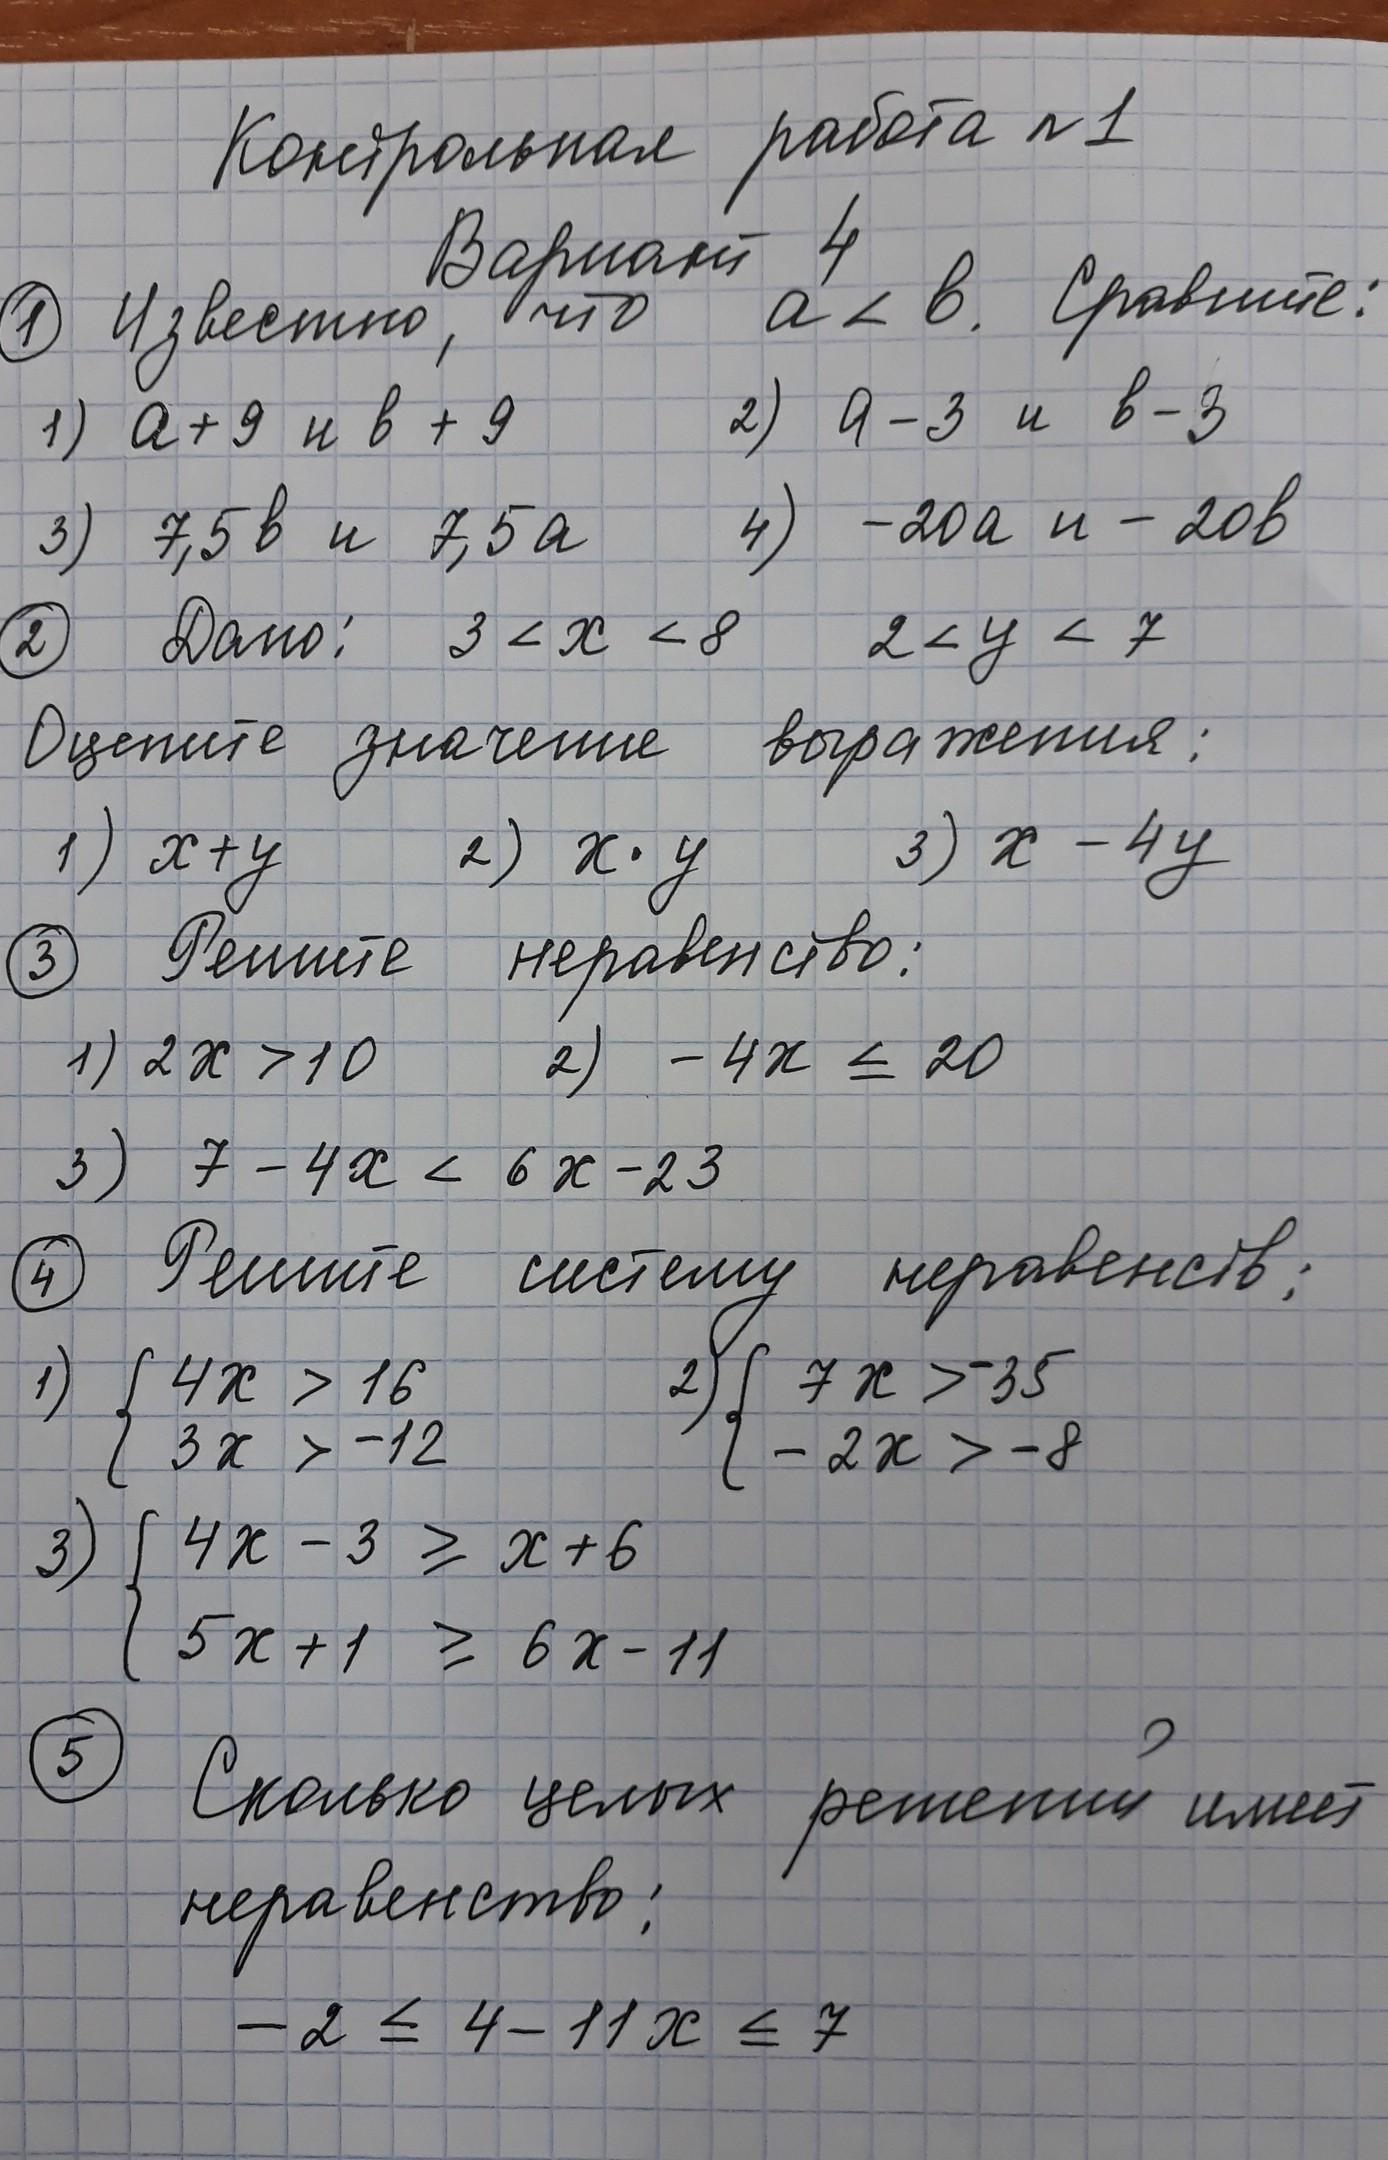 Контрольная работа №1
Вариант 4
① Известно, что a < b. Сравните:
1) a + 9 и b + 9 2) a - 3 и b - 3
3) 7,5b и 7,5a 4) -20a и -20b
② Дано: 3 < x < 8 2 < y < 7
Оцените значение выражения:
1) x + y 2) x · y 3) x - 4y
③ Решите неравенство:
1) 2x > 10 2) -4x ≤ 20
3) 7 - 4x < 6x - 23
④ Решите систему неравенств:
1) { 4x > 16 2) { 7x > -35
3x > -12 -2x > -8
3) { 4x - 3 ≥ x + 6
5x + 1 ≥ 6x - 11
⑤ Сколько целых решений имеет
неравенство:
-2 ≤ 4 - 11x ≤ 7